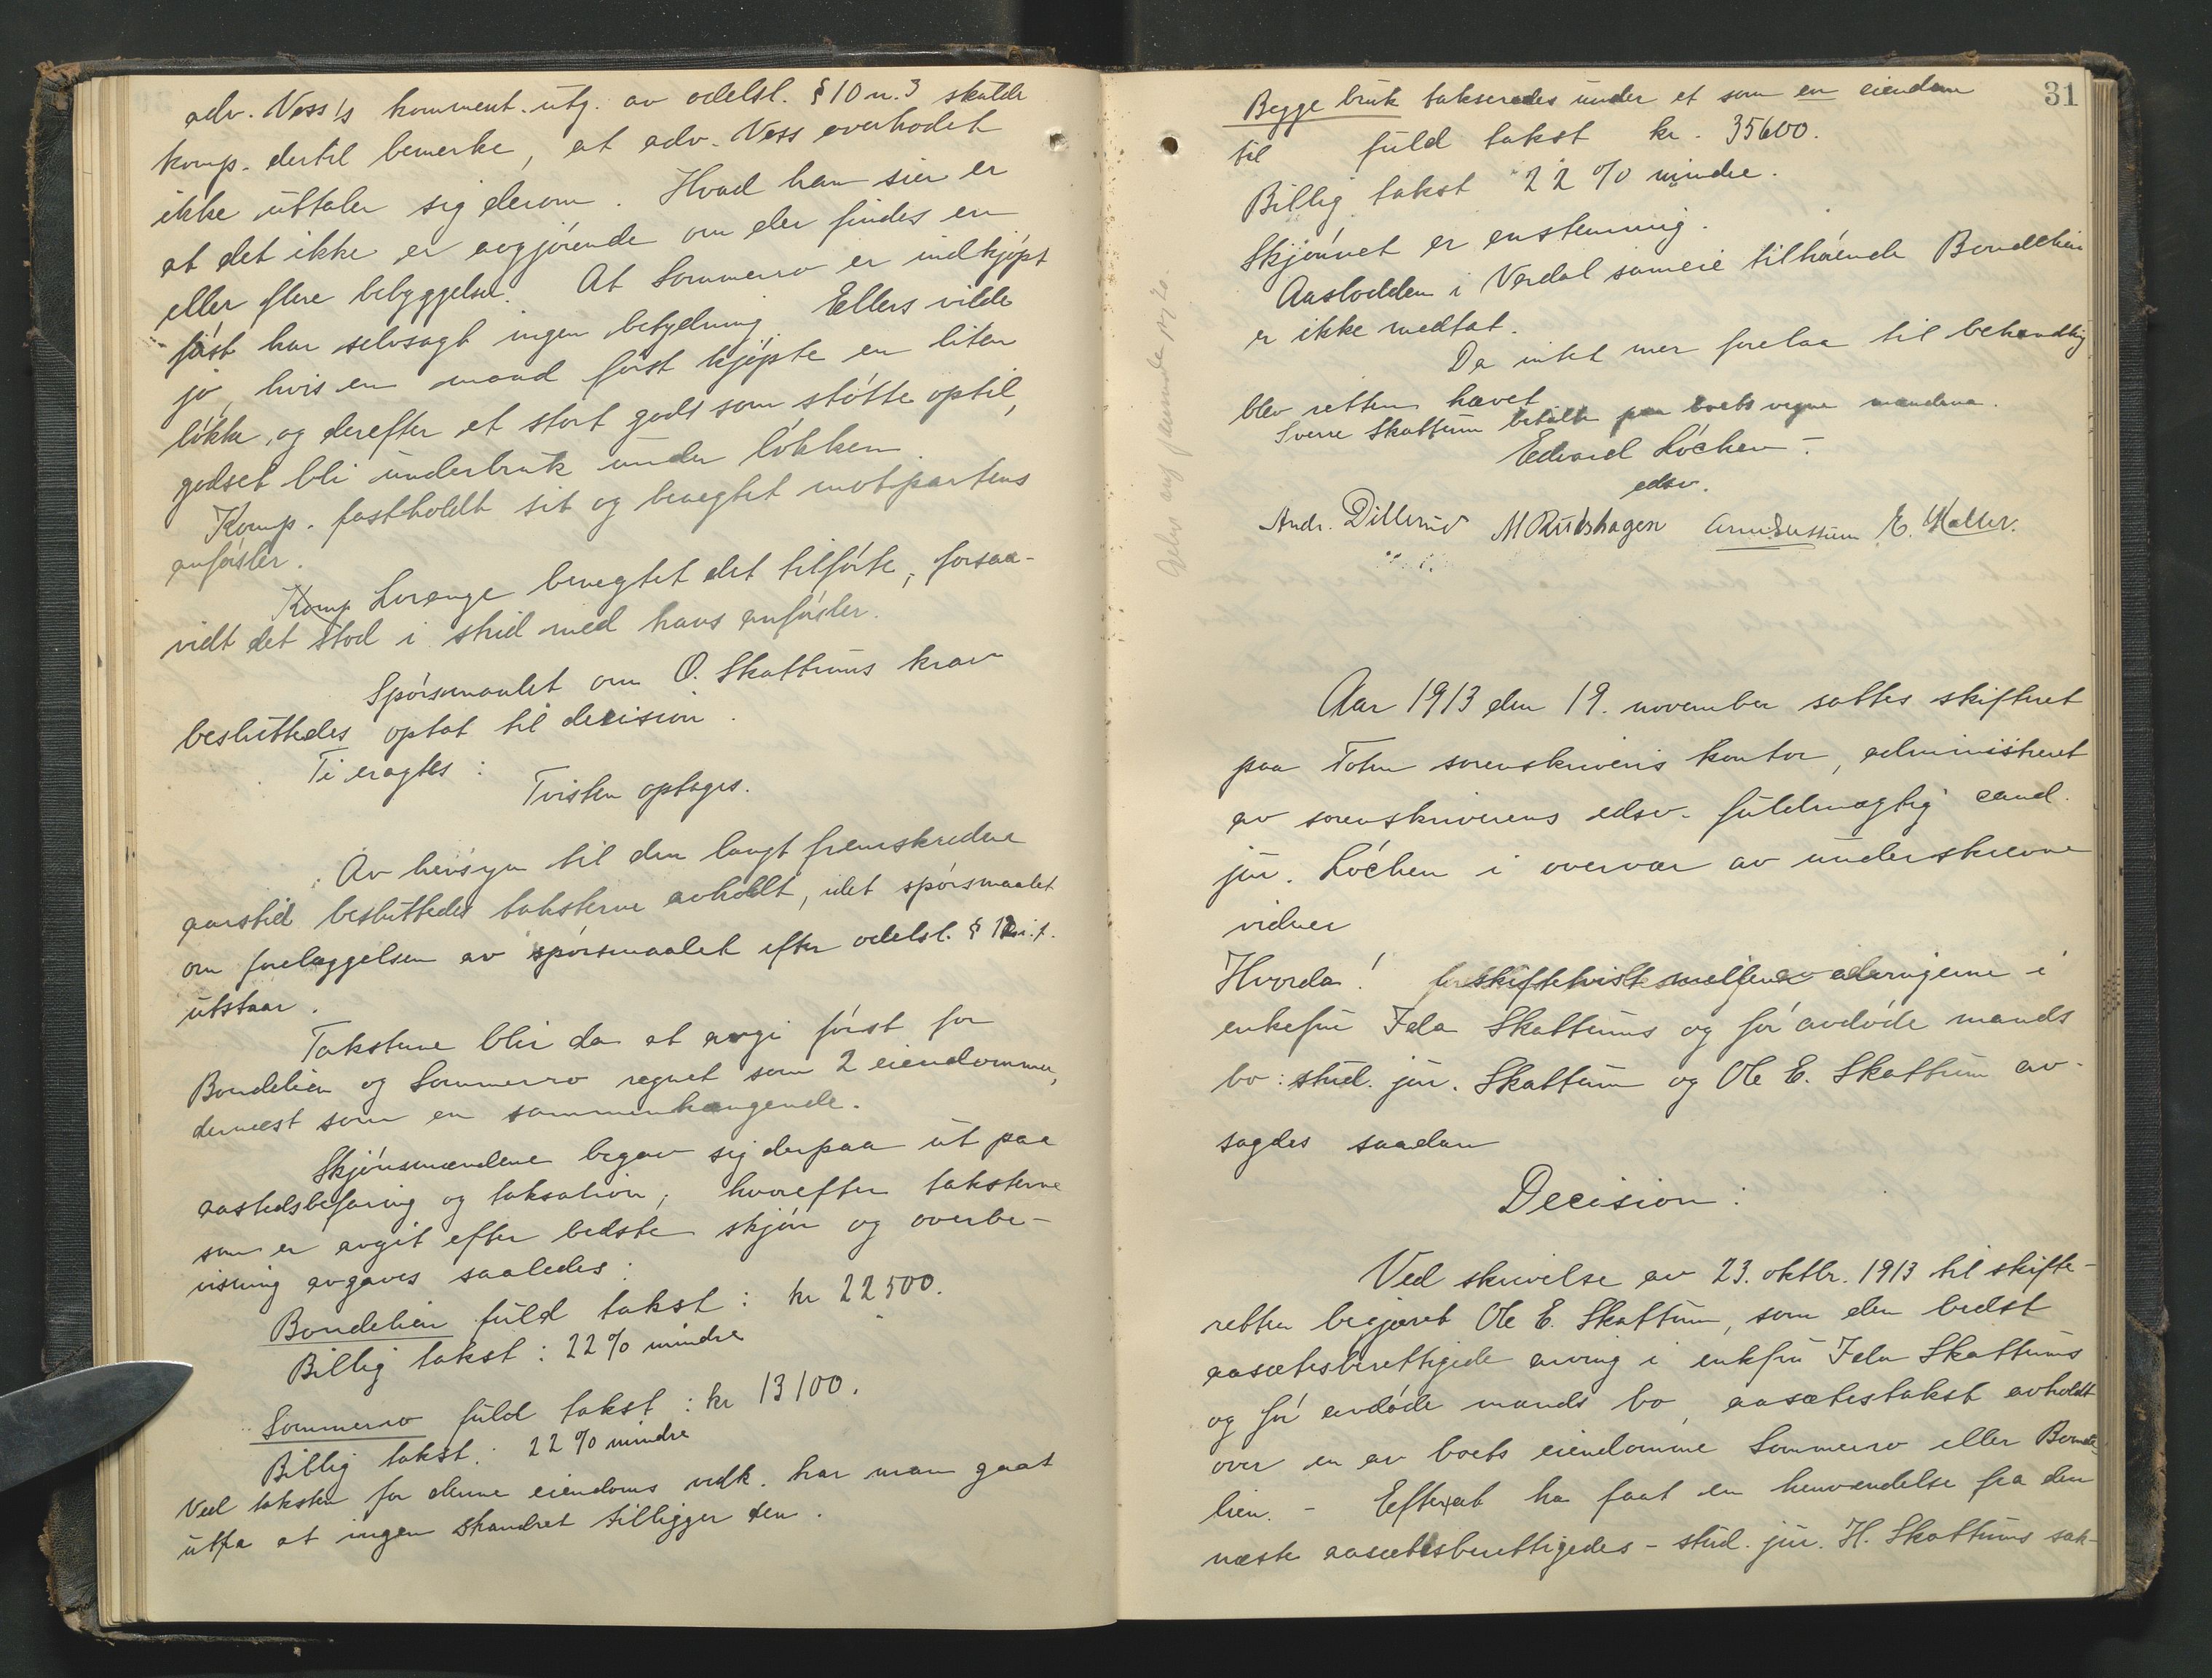 adv. Ness's komment. utg. av odelsl. § 10 n. 3 skulde
komp. dertil bemerke, at adv. Ness overhodet
ikke uttaler sig derom. Hvad han sier er
at det ikke er avgjørende om der findes en
eller flere bebyggelser. At Sommerro er indkjøpt
først har selvsagt ingen betydning. Ellers vilde
jo, hvis en mand først kjøpte en liten
løkke, og derefter et stort gods som støtte optil,
godset bli underbruk under løkken.
Komp. fastholdt sit og benegtet motpartens
anførsler.
Komp Lorange benegtet det tilførte, forsaa-
vidt det stod i strid med hans anførsler.
Spørsmaalet om O. Skattums krav
besluttedes optat til decision.
Ti eragtes:
Tvisten optages.
Av hensyn til den langt fremskredne
aarstid besluttedes taksterne avholdt, idet spørsmaalet
om forelæggelsen av spørsmaalet efter odelsl. § 12
utstaar.
Taksterne blir da at avgi først for
Bondelien og Sommerro regnet som 2 eiendomme,
dernæst som en sammenhængende.
Skjønsmændene begav sig derpaa ut paa
aastedsbefaring og taksation, hvorefter taksterne
som er avgit efter bedste skjøn og overbe-
visning avgaves saaledes:
Bondelien fuld takst: kr 22500.
Billig takst: 22 % mindre
Sommerro fuld takst: kr 13100.
Billig takst: 22 % mindre
Ved taksten for denne eiendoms vedk. har man gaat
ut fra at ingen strandret tilligger den.
31
Begge bruk takseredes under et som en eiendom
til fuld takst kr. 35600.
Billig takst 22 % mindre.
Skjønnet er enstemmig.
Aaslodden i Verdal sameie tilhørende Bondelien
er ikke medtat.
Da intet mer forelaa til behandling
blev retten hævet
Sverre Skattum betalte paa boets vegne mændene.
Edvard Løchen
edsv.
Andr. Dillerud M Rudshagen E. Møller.
Aar 1913 den 19. november sattes skifteret
paa Toten sorenskriveris kontor, administreret
av sorenskriverens edsv. fuldmægtig cand.
jur. Løchen i overvær av underskrevne
vidner
Hvorda! skiftetvist mellem arvingerne i
enkefru Ida Skattums og før avdøde mands
bo: stud. jur. Skattum og Ole E. Skattum av-
sagdes saadan
Decision:
Ved skrivelse av 23. oktbr. 1913 til skifte-
retten begjæret Ole E. Skattum, som den bedst
aasætesberettigede arving i enkefru Ida Skattums
og før avdøde mands bo, aasætestakst avholdt
over en av boets eiendomme Sommerro eller Bonde-
lien. - Efter at ha faat en henvendelse fra den
næste aasætesberettigedes - stud. jur. H. Skattums sak-